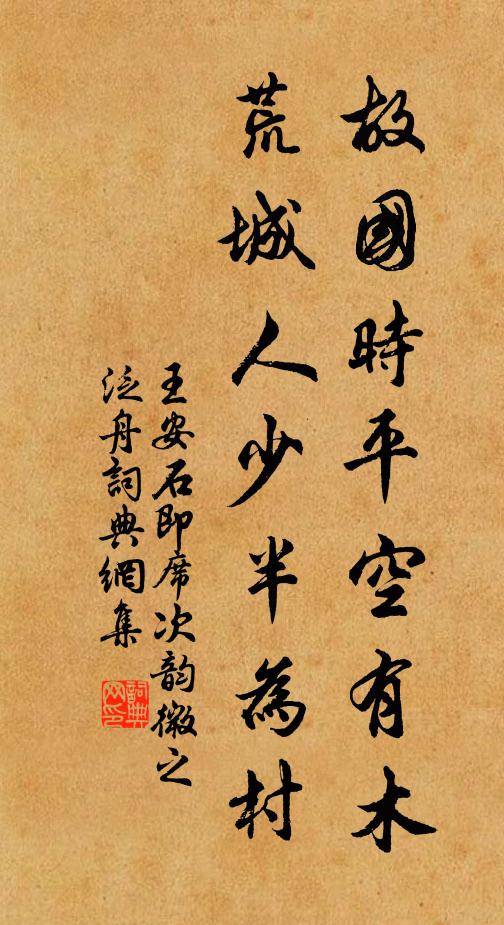 故國時平空有木
荒城人少半為村
王安石即席次韵微之
泛舟詞典網集
詞典网印